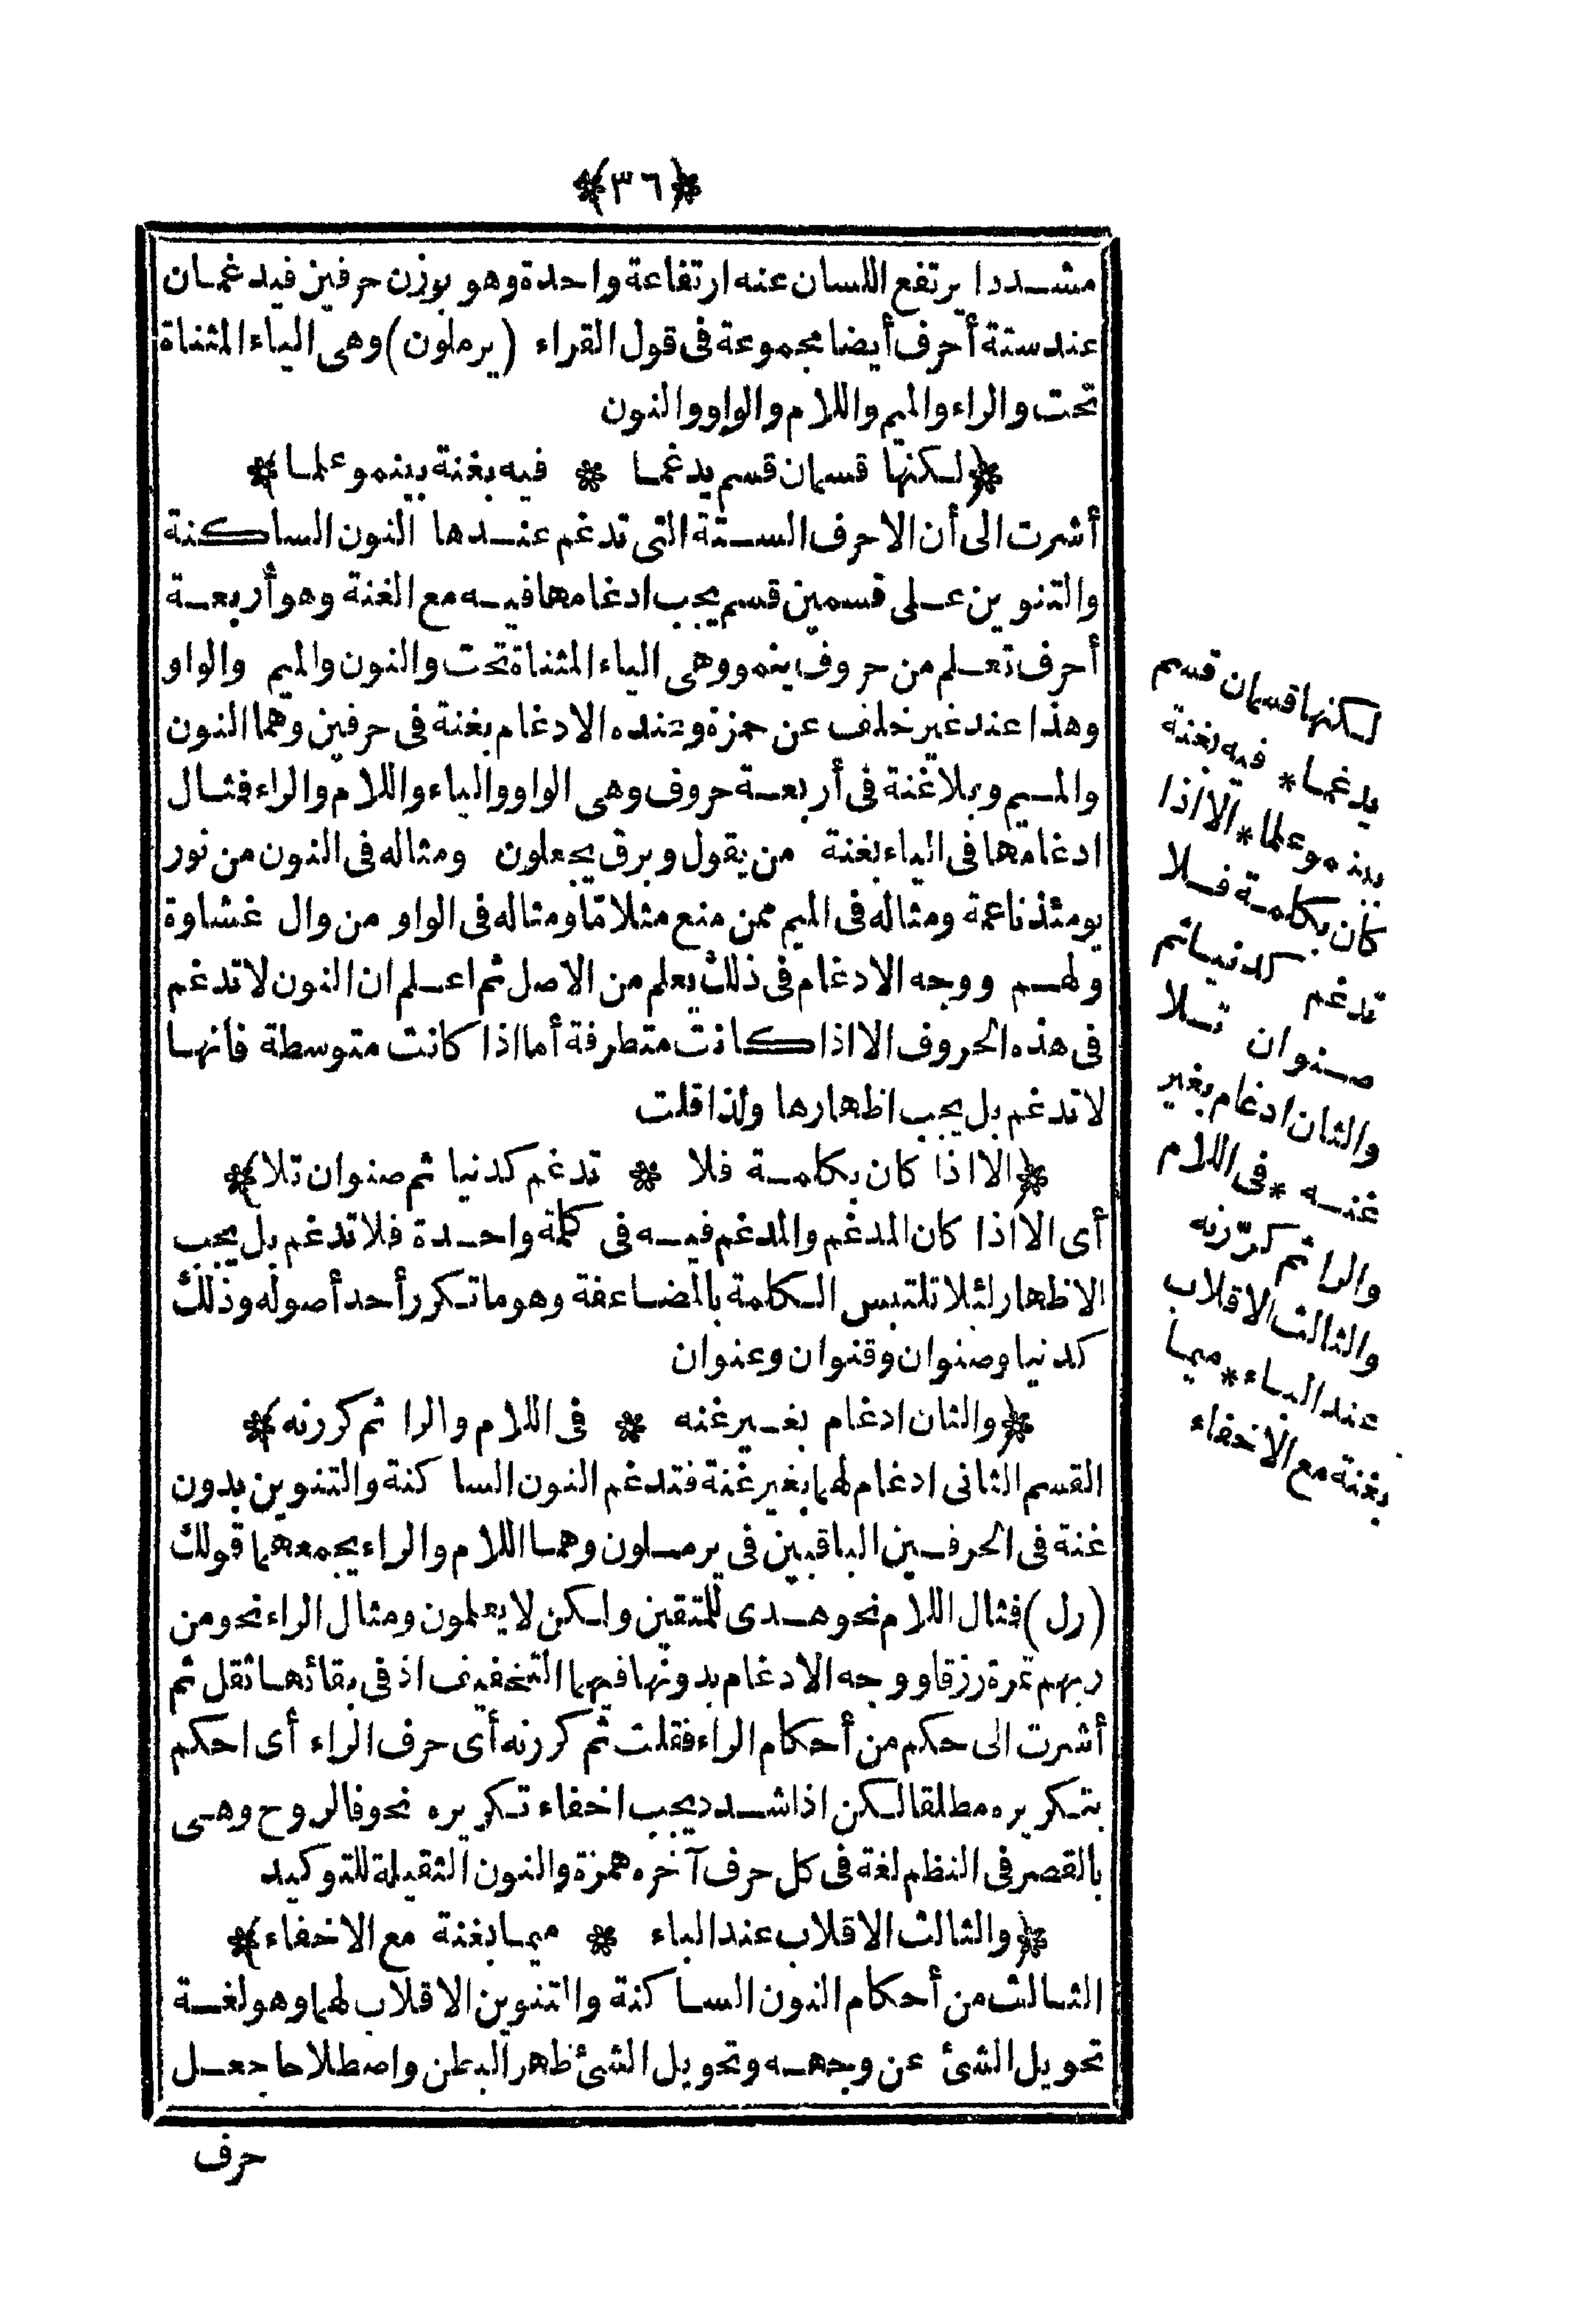 ﴿٣٦﴾
مشددا يرتفع اللسان عنه ارتفاعة واحدة وهو بوزن حرفين فيدغمان
عند ستة أحرف أيضا مجموعة فى قول القراء (يرملون) وهى الياء المثناة
تحت والراء والميم واللام والواو والنون
﴿لكنها قسمان قسم يدغما * فيه بغنة بينمو علما﴾
أشرت الى أن الاحرف الستة التى تدغم عندها النون الساكنة
والتنوين على قسمين قسم يجب ادغامها فيه مع الغنة وهو أربعة
أحرف تعلم من حروف ينمو وهى الياء المثناة تحت والنون والميم والواو
وهذا عند غير خلف عن حمزة وعنده الادغام بغنة فى حرفين وهما النون
والميم وبلا غنة فى أربعة حروف وهى الواو والياء واللام والراء فثال
ادغامها فى الياء بغنة من يقول وبرق يجعلون ومثاله فى النون من نور
يومئذ ناعمة ومثاله فى الميم ممن منع مثلا مّا ومثاله فى الواو من وال غشاوة
ولهم ووجه الادغام فى ذلك يعلم من الاصل ثم اعلم ان النون لا تدغم
فى هذه الحروف الا اذا كانت متطرفة أما اذا كانت متوسطة فانها
لا تدغم بل يجب اظهارها ولذا قلت
﴿الا اذا كان بكلمة فلا * تدغم كدنيا ثم صنوان تلا﴾
أى الا اذا كان المدغم والمدغم فيه فى كلمة واحدة فلا تدغم بل يجب
الاظهار لئلا تلتبس الكلمة بالمضاعفة وهو ما تكرر أحد أصوله وذلك
كدنيا وصنوان وقنوان وعنوان
﴿والثان ادغام بغير غنه * فى اللام والرا ثم كررنه﴾
القسم الثانى ادغام لهما بغير غنة فتدغم النون الساكنة والتنوين بدون
غنة فى الحرفين الباقيين فى يرملون وهما اللام والراء يجمعهما قولك
(رل) فثال اللام نحو هدى للمتقين ولكن لا يعلمون ومثال الراء نحو من
ربهم ثمرة رزقا ووجه الادغام بدونها فيهما التخفيف اذ فى بقائها ثقل ثم
أشرت الى حكم من أحكام الراء فقلت ثم كررنه أى حرف الراء أى احكم
بتكريره مطلقا لكن اذا شدد يجب اخفاء تكريره نحو فالروح وهى
بالقصر فى النظم لغة فى كل حرف آخره همزة والنون الثقيلة للتوكيد
﴿والثالث الاقلاب عند الباء * ميما بغنة مع الاخفاء﴾
الثالث من أحكام النون الساكنة والتنوين الاقلاب لهما وهو لغة
تحويل الشئ عن وجهه وتحويل الشئ ظهرا لبطن واصطلاحا جعل
حرف
لكنها قسمان قسم
يدغما* فيه بغنة
بينمو علما* الا اذا
كان بكلمة فلا
تدغم كدنيا ثم
صنوان تلا
والثان ادغام بغير
غنه * فى اللام
والرا ثم كرّرنه
والثالث الاقلاب
عند الباء* ميما
بغنة مع الاخفاء